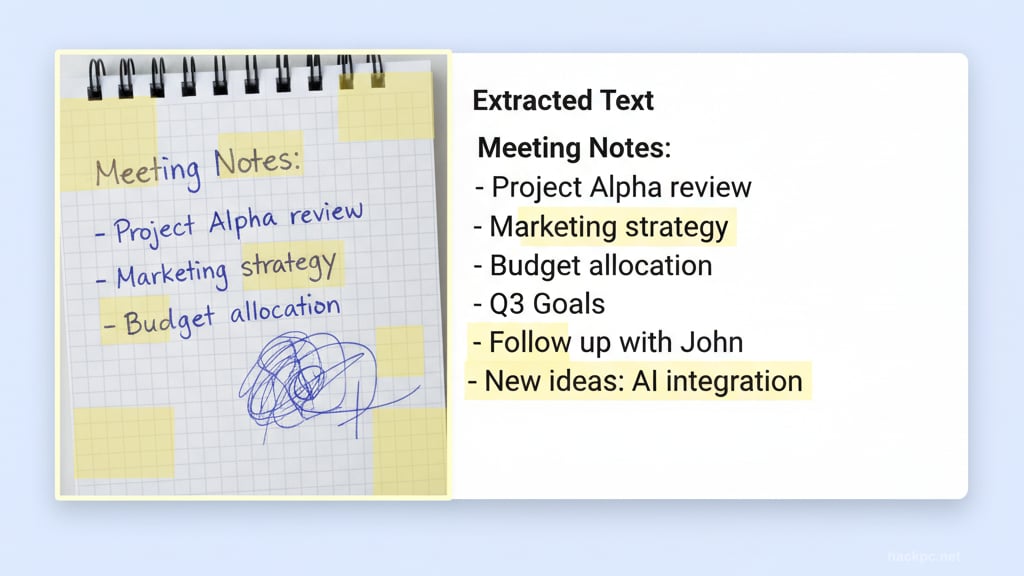 Meeting Notes:
- Project Alpha review
- Marketing strategy
- Budget allocation
Extracted Text
Meeting Notes:
- Project Alpha review
- Marketing strategy
- Budget allocation
- Q3 Goals
- Follow up with John
- New ideas: AI integration
hackpc.net